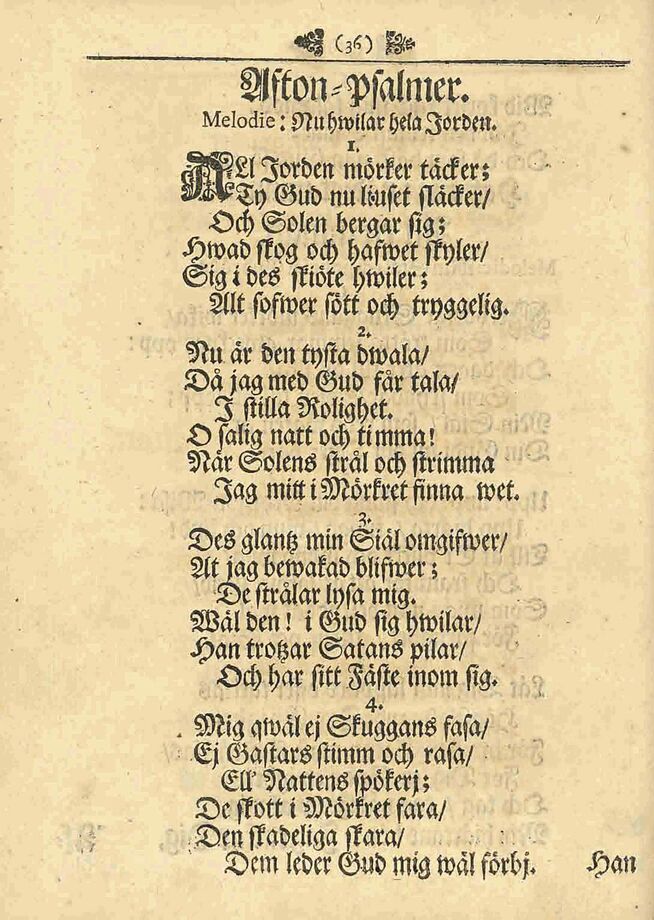 (36)
Afton-Psalmer.
Melodie: Nu hwilar hela Jorden.
1.
ALl Jorden mörker täcker;
Ty Gud nu liuset släcker/
Och Solen bergar sig;
Hwad skog och hafwet skyler/
Sig i des skiöte hwiler;
Alt sofwer sött och tryggelig.
2.
Nu är den tysta dwala/
Då jag med Gud får tala/
I stilla Rolighet.
O salig natt och timma!
När Solens strål och strimma
Jag mitt i Mörkret finna wet.
3.
Des glantz min Siäl omgifwer/
At jag bewakad blifwer;
De strålar lysa mig.
Wäl den! i Gud sig hwilar/
Han trotzar Satans pilar/
Och har sitt Fäste inom sig.
4.
Mig qwäl ej Skuggans fasa/
Ej Gastars stimm och rasa/
Ell' Nattens spökerj;
De skott i Mörkret fara/
Den skadeliga skara/
Dem leder Gud mig wäl förbj.
Han